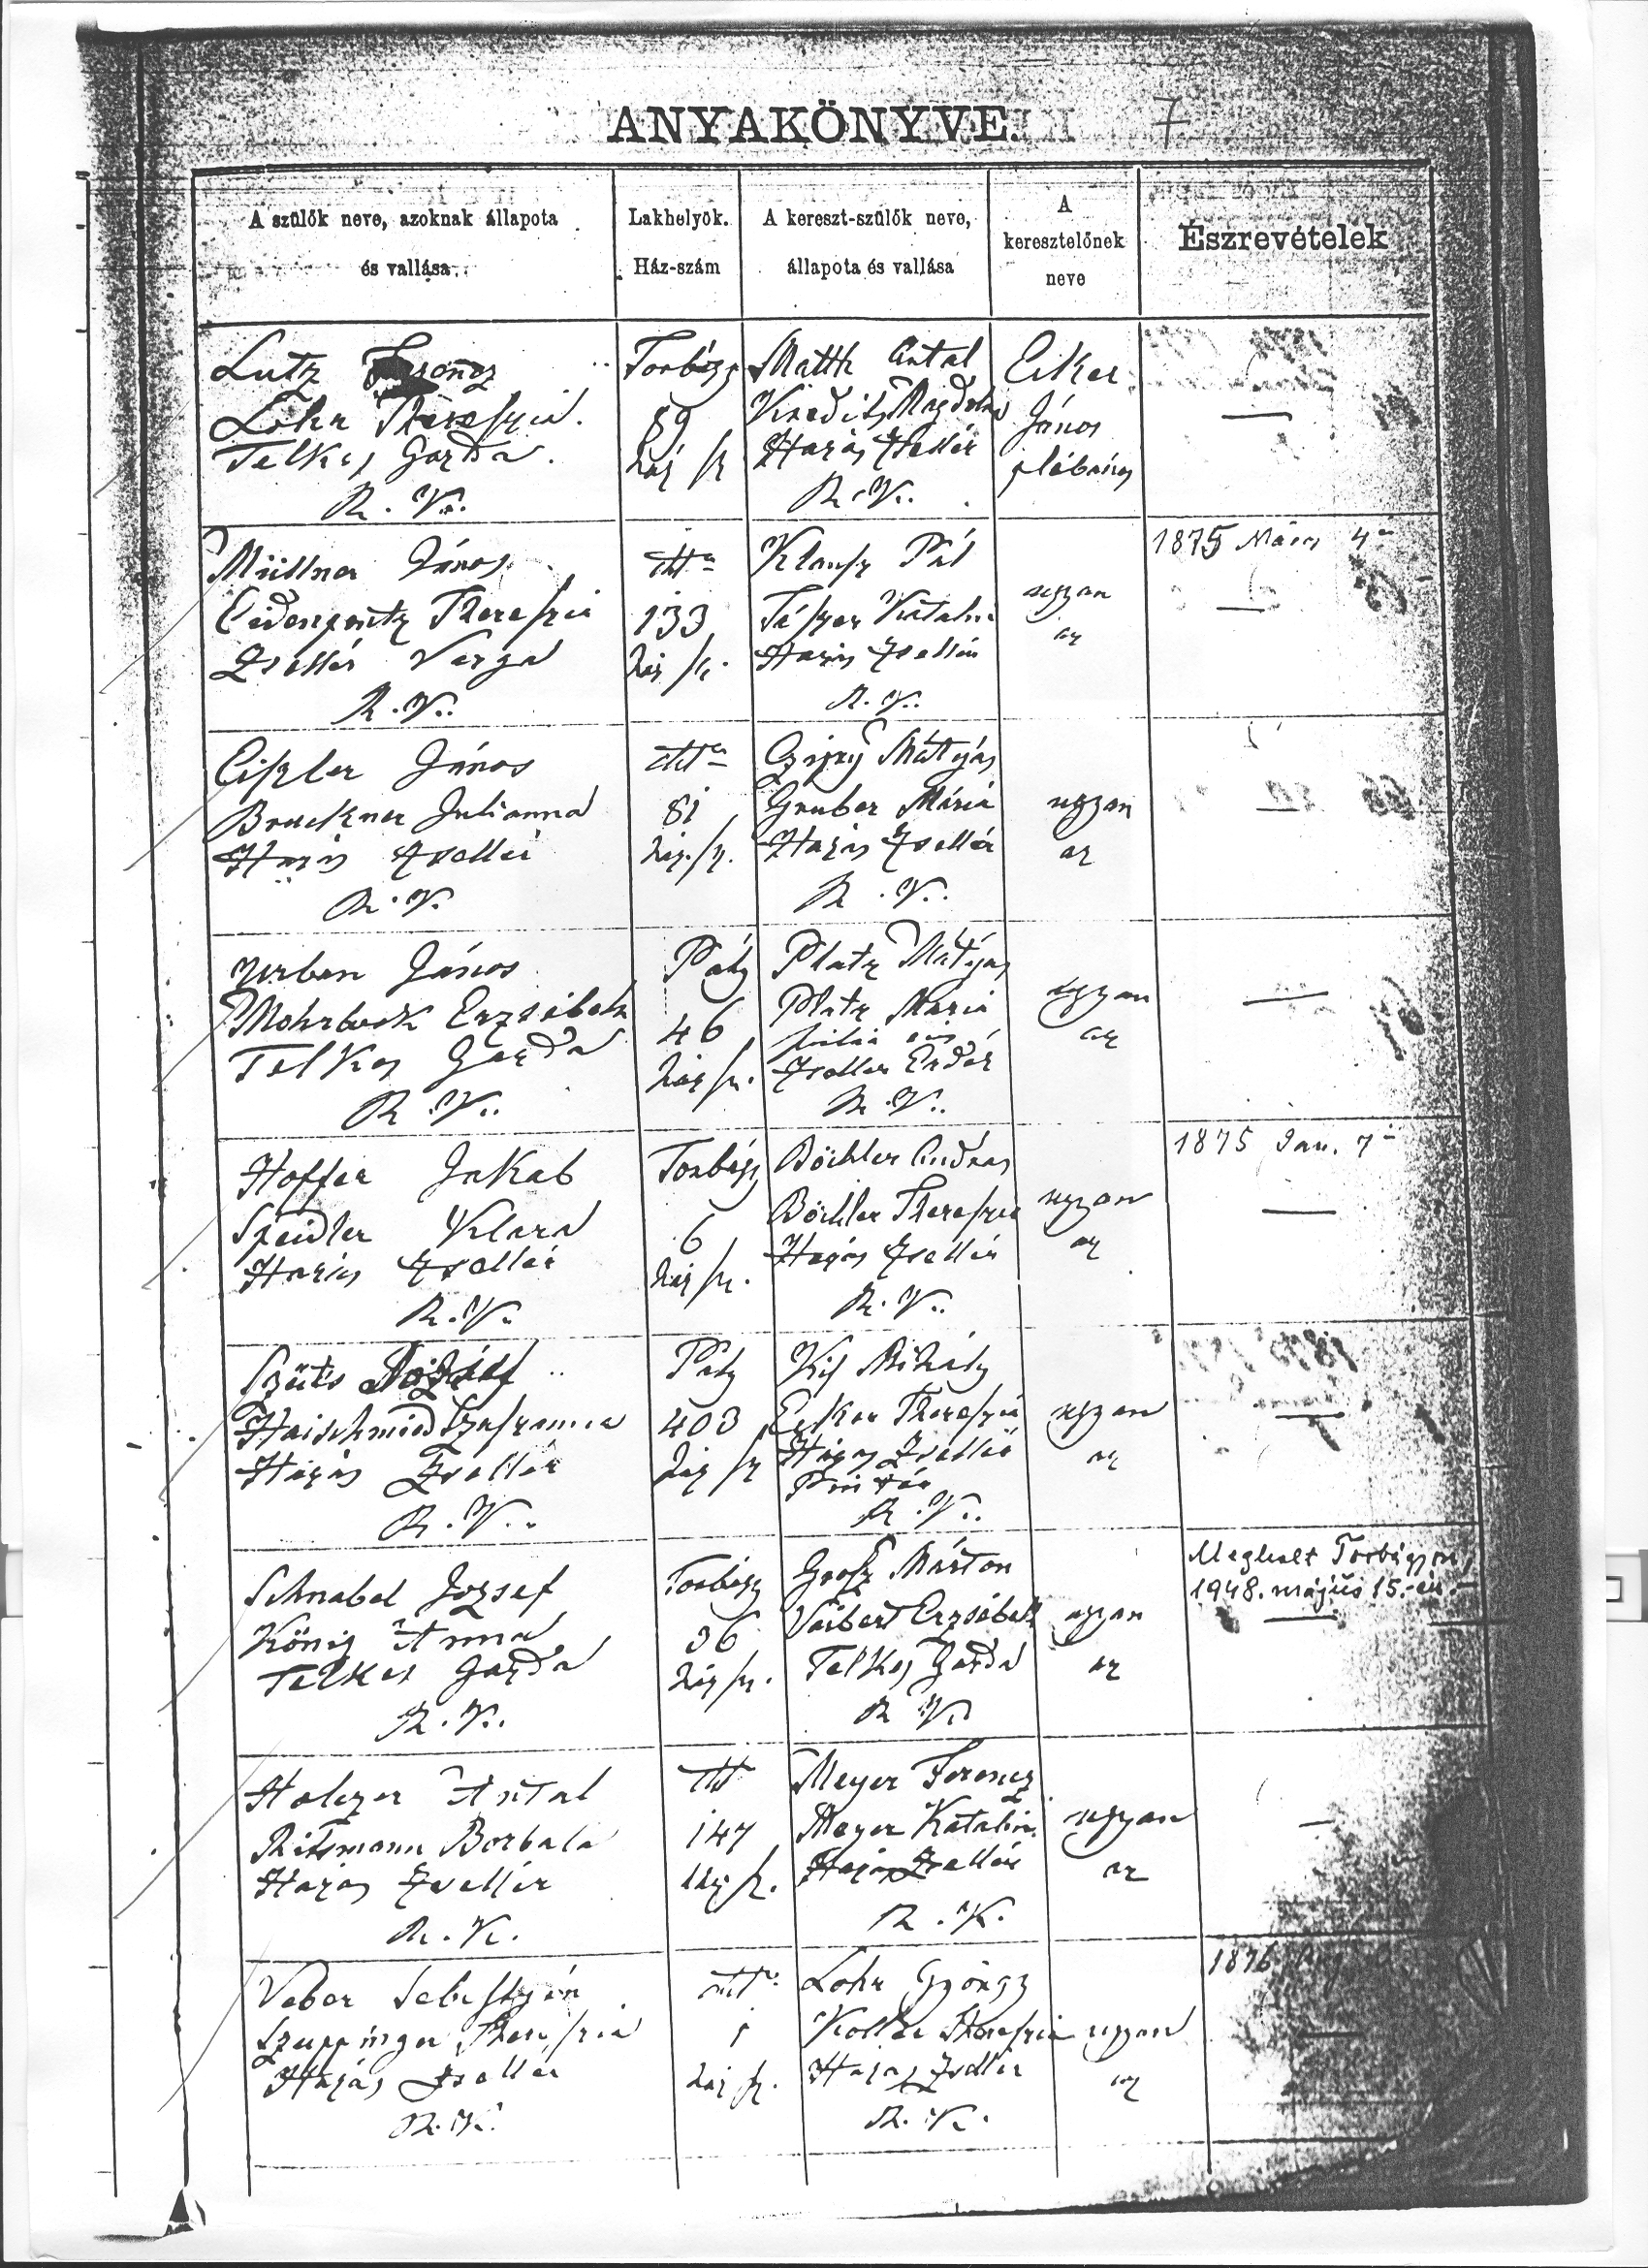 ANYAKÖNYVE. 7
A szülők neve, azoknak állapota
és vallása
Lakhelyök.
Ház-szám
A kereszt-szülők neve,
állapota és vallása
A
keresztelőnek
neve
Észrevételek
Lutz Ferencz
Lohr Thereszia
Telkes Gazda
R. K.
Torbágy
89
ház sz
Matth Antal
Magdolna
Házas Zsellér
R. K.
Eiker
János
plébános
—
Müllner János
Thereszia
Zsellér Varga
R. K.
dtto
133
ház sz.
Klausz Pál
Katalin
Házas Zsellér
R. K.
ugyan
az
1875 Márcz 4
—
Eiszler János
Bruckner Julianna
Házas Zsellér
R. K.
dtto
81
ház. sz.
Mátyás
Gruber Mária
Házas Zsellér
R. K.
ugyan
az
—
Urban János
Mohrbock Erzsébeth
Telkes Gazda
R. K.
Páty
46
ház sz.
Platz Mátyás
Platz Maria
filia eius
Zseller
R. K.
ugyan
az
—
Hoffer Jakab
Szeidler Klara
Házas Zsellér
R. K.
Torbágy
6
ház sz.
Böchler András
Böchler Thereszia
Házas Zsellér
R. K.
ugyan
az
1875 Jan. 7
—
Szüts József
Haischmied Zsuzsanna
Házas Zsellér
R. K.
Páty
403
ház sz
Kis Mihály
Thereszia
Házas Zsellér
Pintér
R. K.
ugyan
az
—
Schnabel Jozsef
König Anna
Telkes Gazda
R. K.
Torbágy
36
ház sz.
Grosz Márton
Veibert Erzsébeth
Telkes Gazda
R. K.
ugyan
az
Meghalt Torbágyon
1948. május 15.-én.
—
Holczer Antal
Ritsmann Borbala
Házas Zsellér
R. K.
dtt
147
ház sz.
Meyer Ferencz
Meyer Katalin
Házas Zsellér
R. K.
ugyan
az
—
Veber Sebestyén
Szuppinger Thereszia
Házas Zsellér
R. K.
dtto
1
ház sz.
Lohr György
Koller Thereszia
Házas Zsellér
R. K.
ugyan
az
1876
—